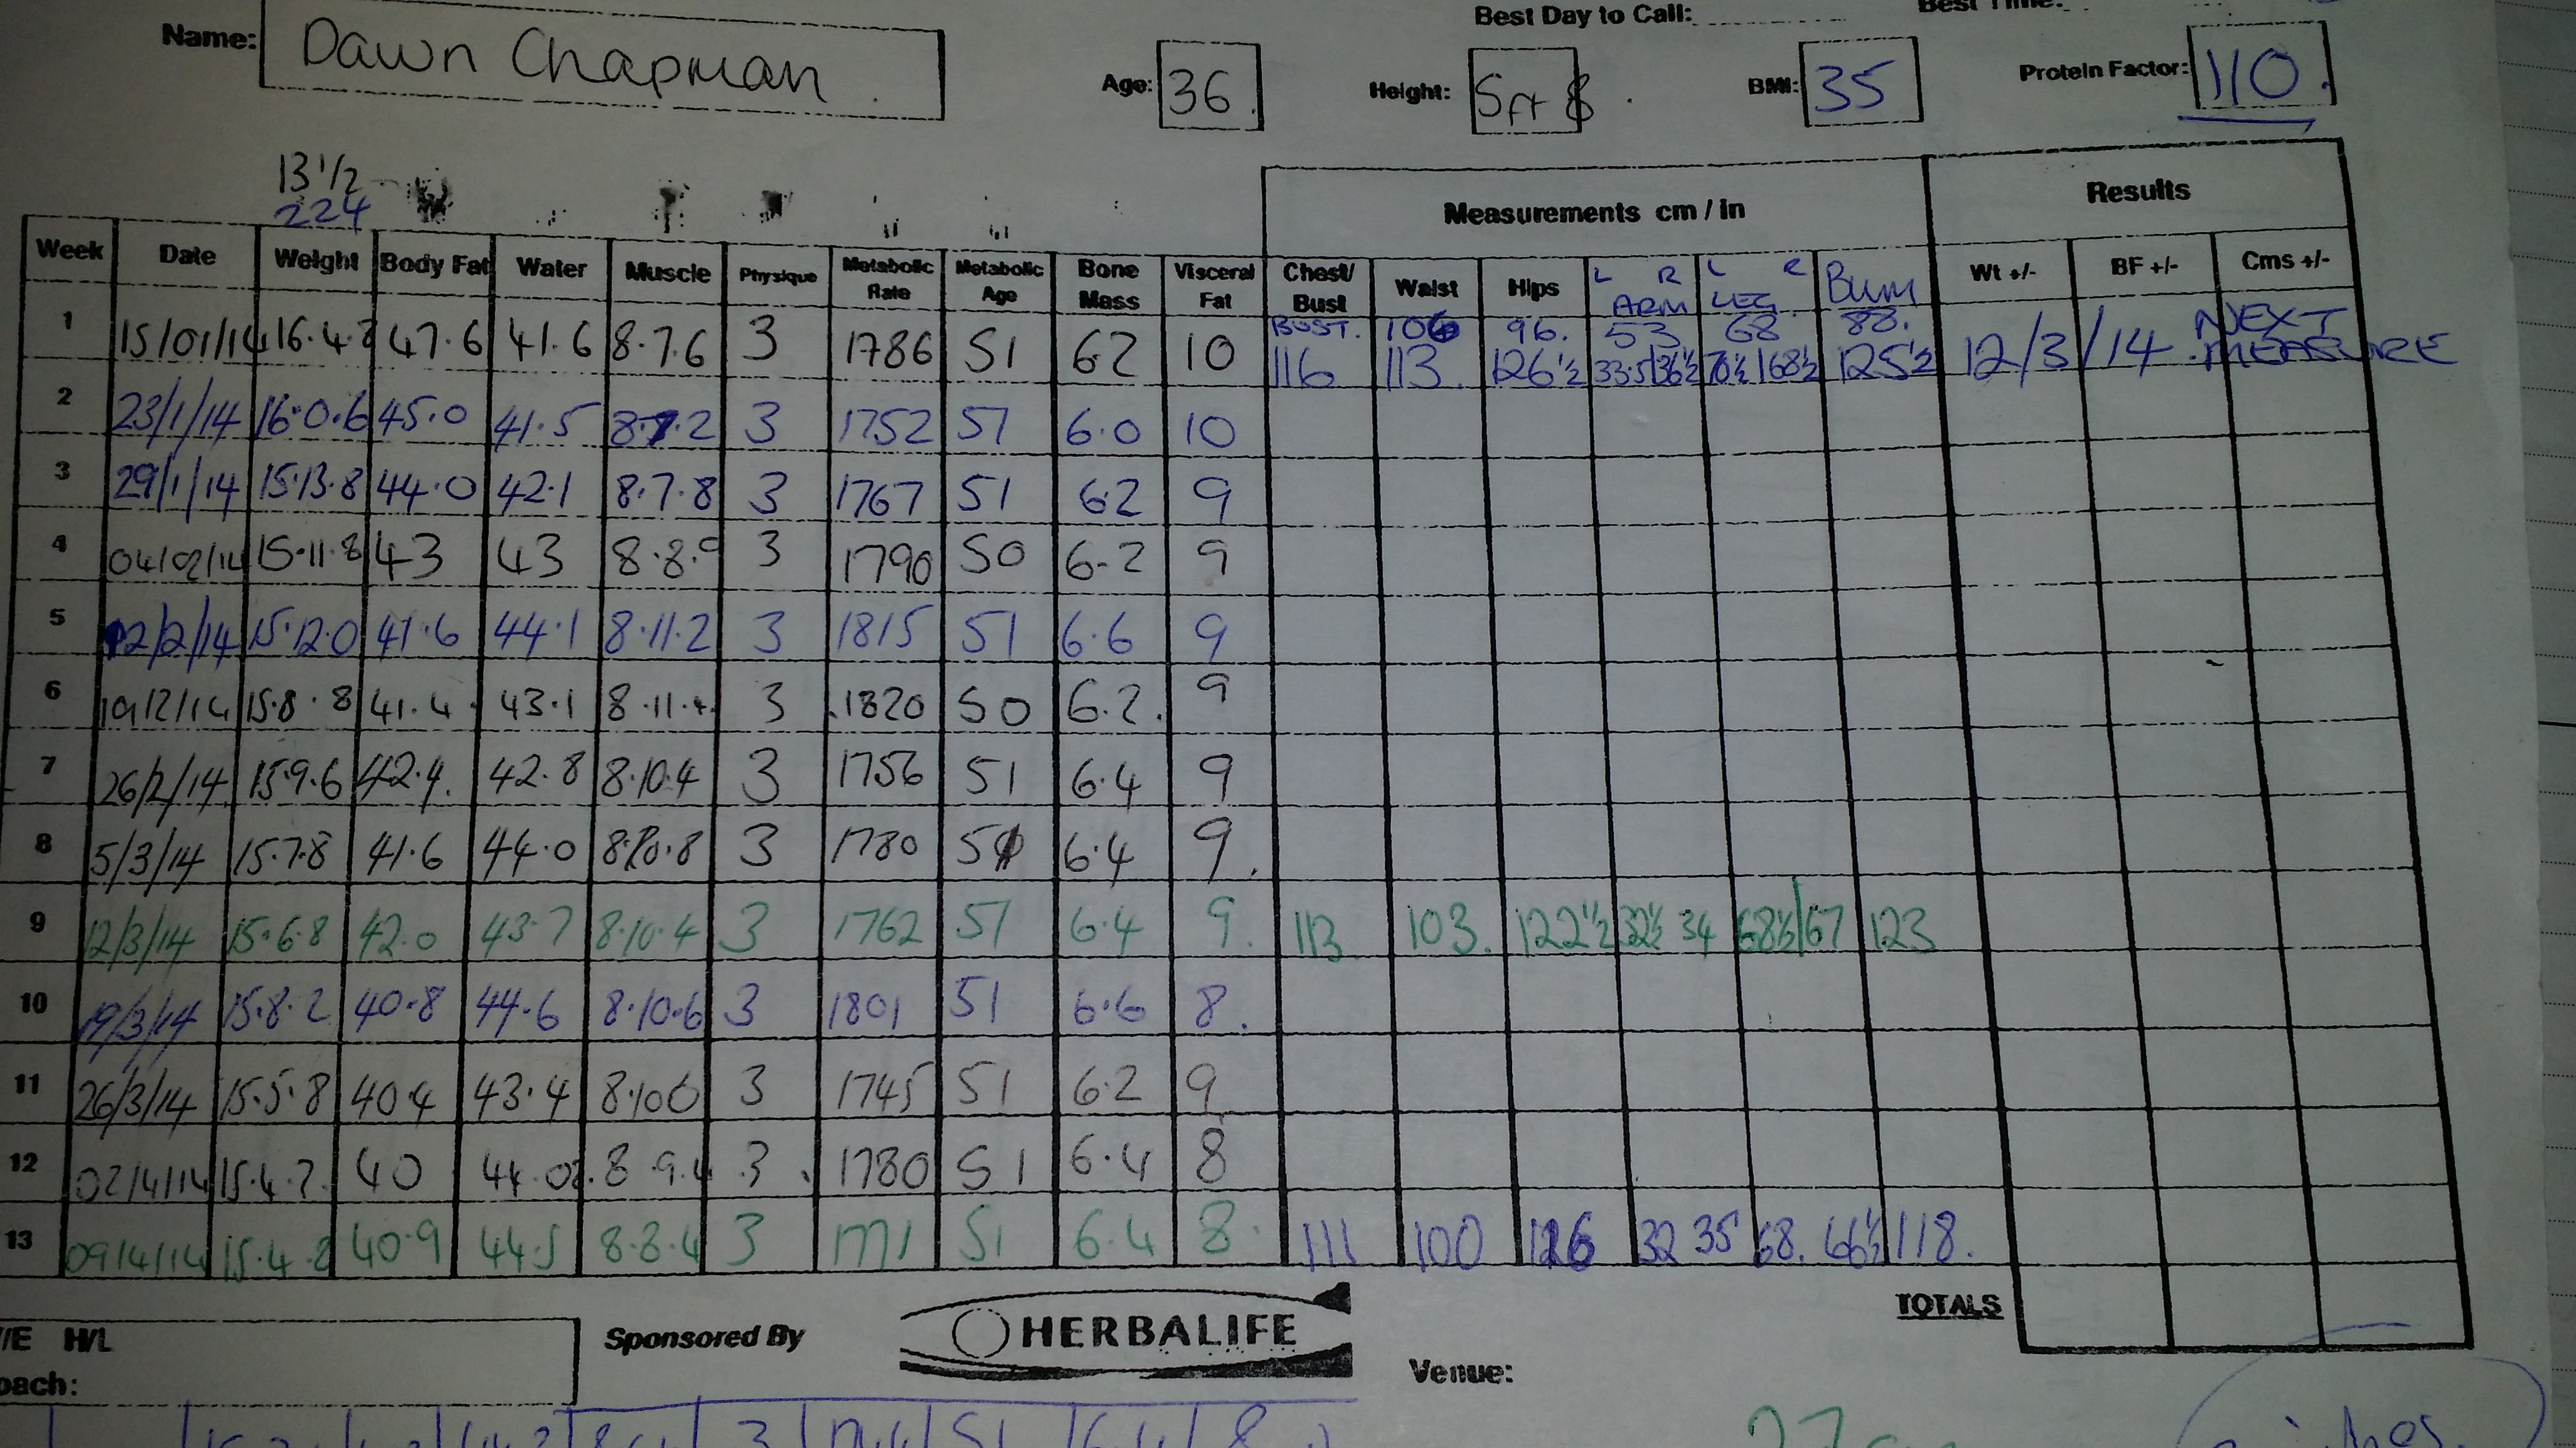 Best Day to Call: Best Time:
Name: Dawn Chapman Age: 36 Height: 5ft 8 BMI: 35 Protein Factor: 110
13 1/2
224
Measurements cm / in Results
Week Date Weight Body Fat Water Muscle Physique Metabolic Rate Metabolic Age Bone Mass Visceral Fat Chest/ Bust Waist Hips L R ARM L R LEG Bum Wt +/- BF +/- Cms +/-
BUST. 106 96. 53 68 88. NEXT
1 15/01/14 16.4.8 47.6 41.6 8.7.6 3 1786 51 6.2 10 116 113 126½ 33.5 36½ 70½ 68½ 125½ 12/3/14 MEASURE
2 23/1/14 16.0.6 45.0 41.5 8.7.2 3 1752 51 6.0 10
3 29/1/14 15.13.8 44.0 42.1 8.7.8 3 1767 51 6.2 9
4 04/02/14 15.11.8 43 43 8.8. 3 1790 50 6.2 9
5 12/2/14 15.12.0 41.6 44.1 8.11.2 3 1815 51 6.6 9
6 19/2/14 15.8.8 41.4 43.1 8.11.4 3 1820 50 6.2. 9
7 26/2/14 15.9.6 42.4. 42.8 8.10.4 3 1756 51 6.4 9
8 5/3/14 15.7.8 41.6 44.0 8.10.8 3 1780 51 6.4 9.
9 12/3/14 15.6.8 42.0 43.7 8.10.4 3 1762 51 6.4 9. 113 103. 122½ 32½ 34 68½ 67 123
10 19/3/14 15.8.2 40.8 44.6 8.10.6 3 1801 51 6.6 8.
11 26/3/14 15.5.8 40.4 43.4 8.10 6 3 1745 51 6.2 9
12 02/4/14 15.4.2. 40 44.0 8.9.4 3 1780 51 6.4 8
13 09/4/14 15.4.8 40.9 44.5 8.8.4 3 1771 51 6.4 8. 111 100 126 32 35 68. 66½ 118.
TOTALS
H/L Sponsored By HERBALIFE
Venue:
3 51 6.4 8